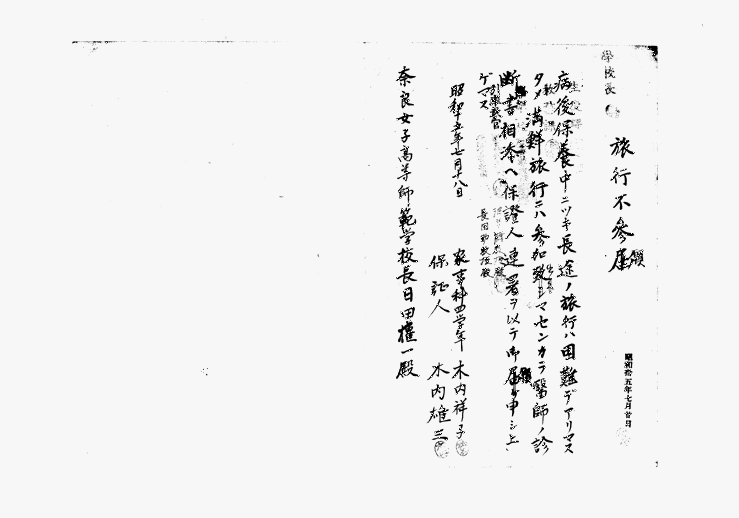 學校長
旅行不參届
願
昭和拾五年七月廿日
病後保養中ニツキ長途ノ旅行ハ困難デアリマス
タメ満鮮旅行ニハ參加致シマセンカラ醫師ノ診
断書相添ヘ保證人連署ヲ以テ御届申シ上
願
ゲマス
昭和十五年七月十八日
家事科四学年 木内祥子
保証人 木内雄三
奈良女子高等師範学校長日田權一殿